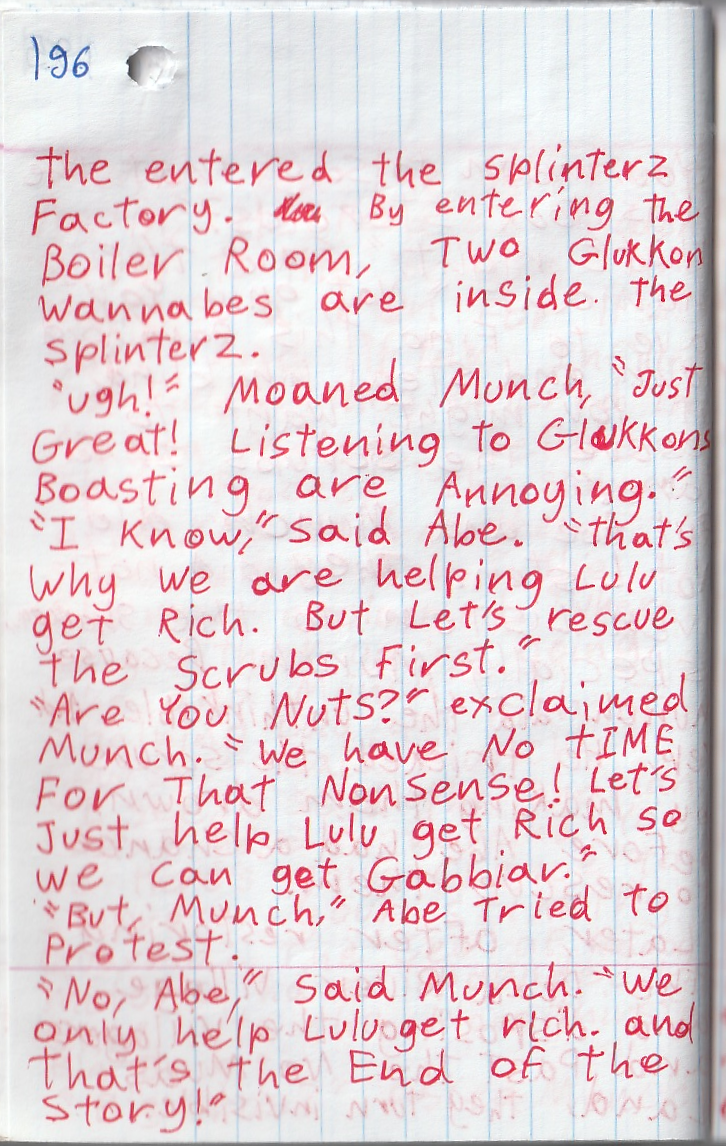 196
the entered the splinterz
Factory. By entering the
Boiler Room, Two Glukkon
wannabes are inside. the
splinterz.
"ugh!" Moaned Munch, "Just
Great! Listening to Glukkons
Boasting are Annoying."
"I Know," said Abe. "that's
why we are helping Lulu
get Rich. But Let's rescue
the Scrubs First."
"Are You Nuts?" exclaimed
Munch. "We have No tIME
For That NonSense! Let's
Just help Lulu get Rich so
we can get Gabbiar."
"But, Munch," Abe Tried to
Protest.
"No, Abe," Said Munch. "We
only help Lulu get rich. and
that's the End of the
story!"